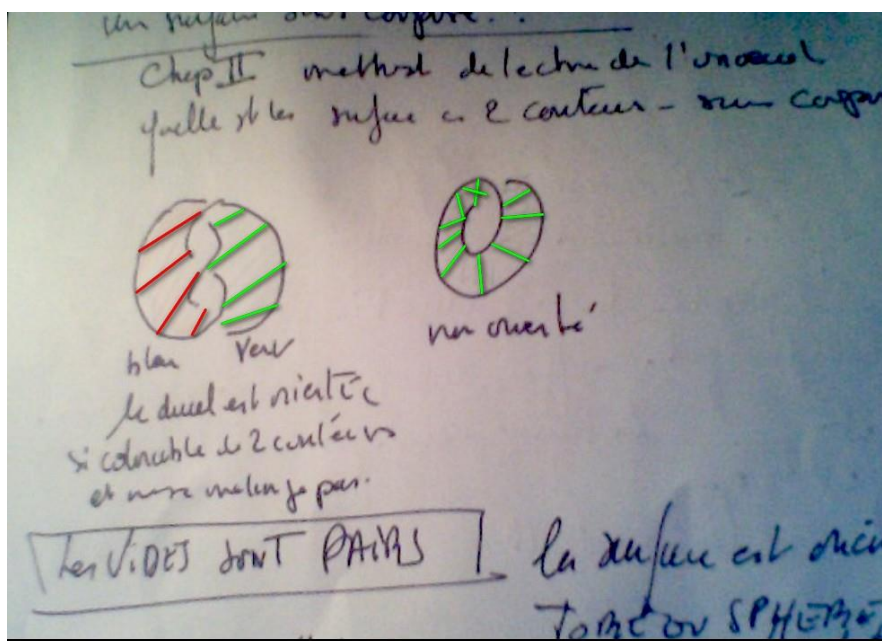 un surface sans coupure..
Chap II method de lecture de l'
quelle st les surface à 2 couleurs - sans coupur
non orienté
bleu Vert
le duel est orienté
si colorable de 2 couleurs
et ne se melange pas.
Les ViDES SONT PAiRS la surface est orien
TORE OU SPHERE